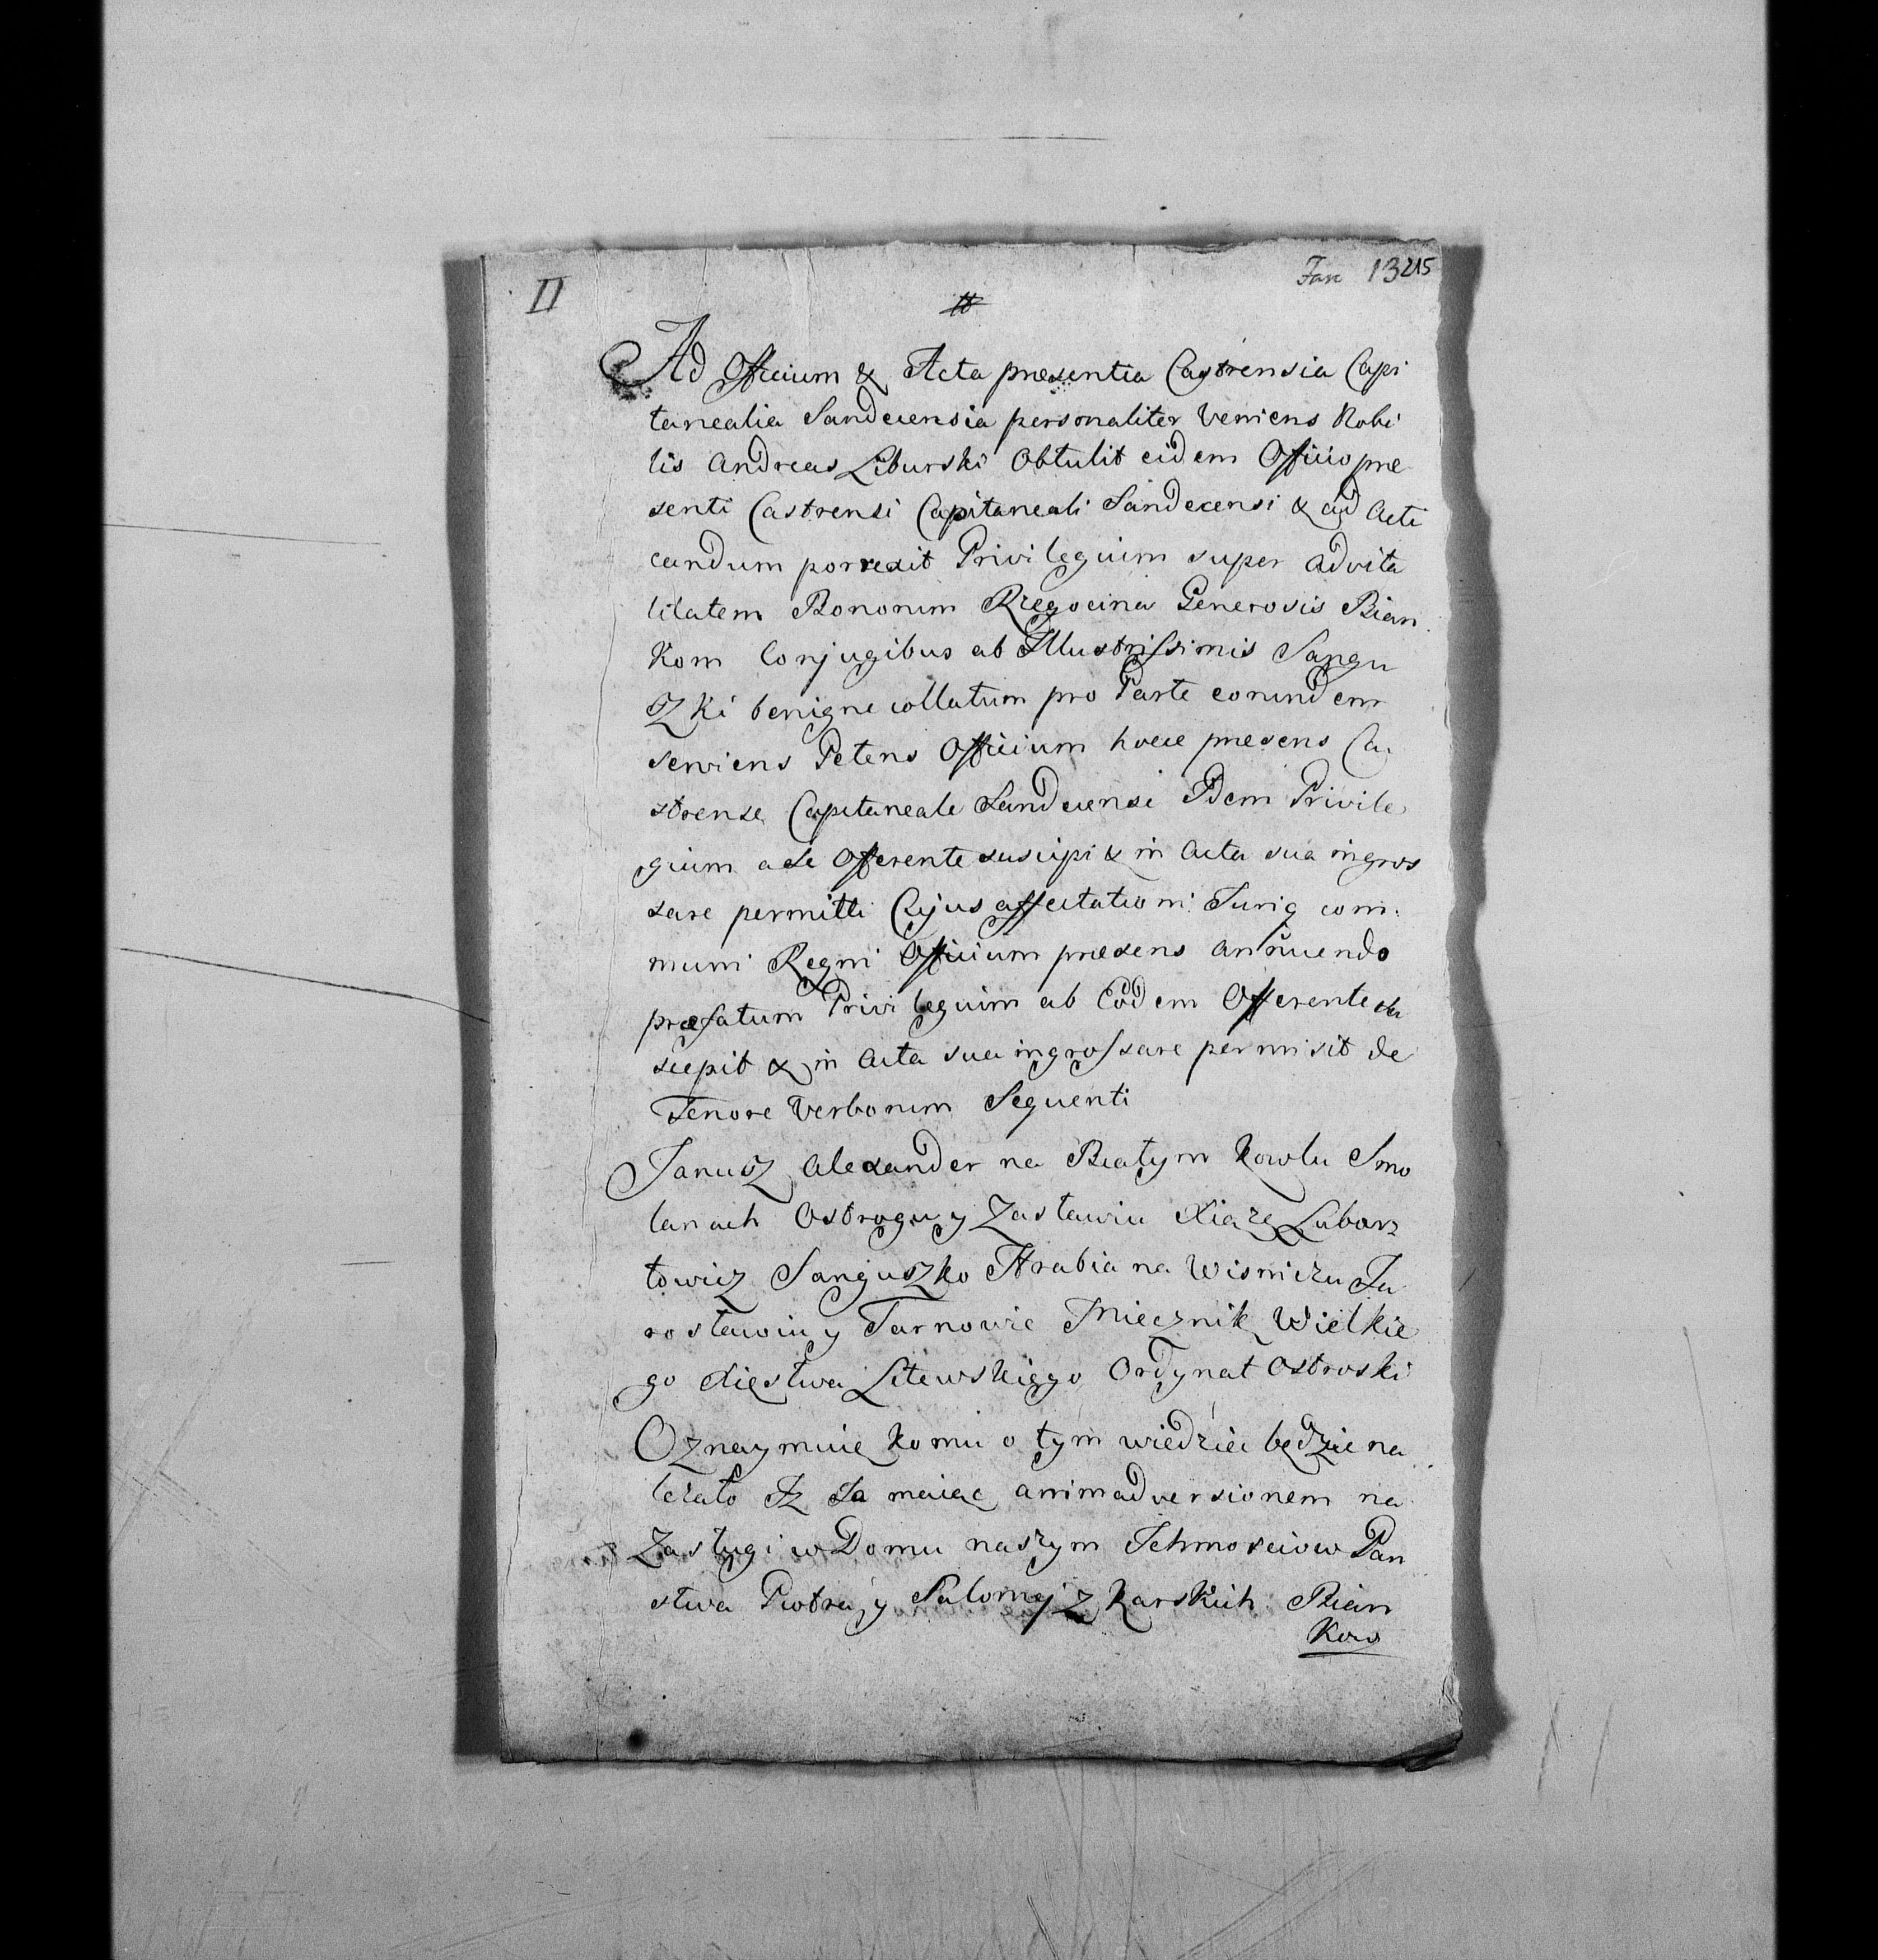 II
Fan 13 215
Ad Officium & Acta præsentia Castrensia Capi
tanealia Sandecensia personaliter Veniens Nobi
lis Andreas Liburski Obtulit eidem Officio præ
senti Castrensi Capitaneali Sandecensi & ad Acti
candum porrexit Privilegium super advita
litatem Bonorum Rzegocina Generosis Bian
kom Conjugibus ab Illustrissimis Sangu
Zki benigne collatum pro Parte eorundem
serviens Petens Officium hocce præsens Ca
strense Capitaneale Sandecense Idem Privile
gium a se Offerente suscipi & in Acta sua ingros
sare permitti Cujus affectationi Juriq com
muni Regni Officium præsens annuendo
præfatum Privilegium ab Eodem Offerente su
scepit & in Acta sua ingrossare permisit de
Tenore Verborum Sequenti
Janusz Alexander na Białym Kowlu Smo
lanach Ostrogu y Zasławiu Xiąże Lubarz
towicz Sanguszko Hrabia na Wisniczu Ja
rosławiu y Tarnowie Miecznik Wielkie
go Xięstwa Litewskiego Ordynat Ostroski
Oznaymuię komu o tym wiedzieć będzie na
leżało Iż Ja maiąc animadversionem na
Zasługi w Domu naszym Ichmosciow Pan
stwa Piotra y Salomej z Karskich Bian
kow